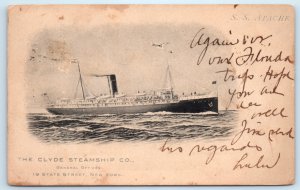 S. S. APACHE
Again &
our Florida
trip. Hope
you are
well
his regards
THE CLYDE STEAMSHIP CO.,
GENERAL OFFICES:
19 STATE STREET, NEW YORK.